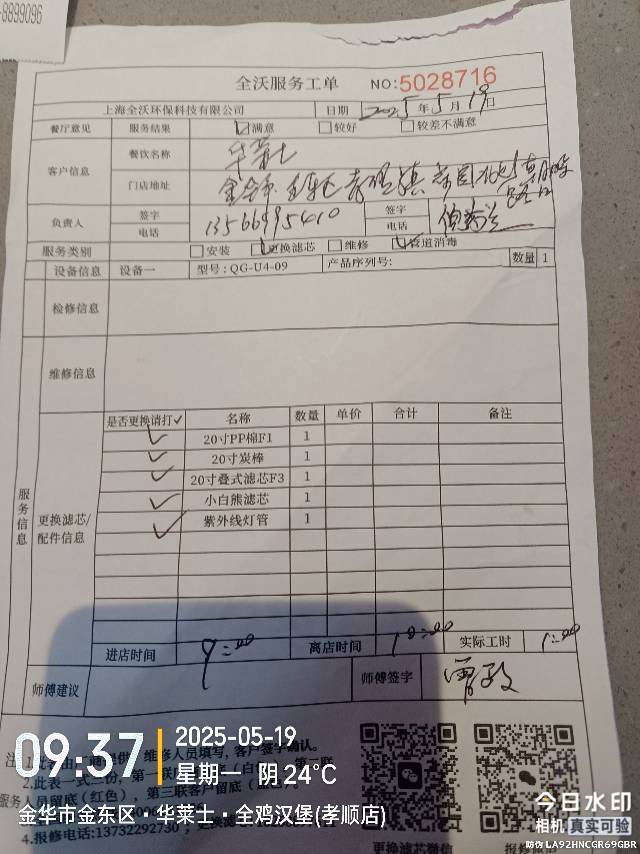 8899096
全沃服务工单 NO:5028716
上海全沃环保科技有限公司 日期 2025年5月19日
餐厅意见 服务结果 ☑满意 □较好 □较差不满意
客户信息 餐饮名称 华莱士
门店地址
负责人 签字 电话 13566995410 签字 电话
服务类别 □安装 ☑更换滤芯 □维修 ☑管道消毒
设备信息 设备一 型号:QG-U4-09 产品序列号: 数量 1
检修信息
维修信息
服务信息
更换滤芯/配件信息
是否更换请打✓ 名称 数量 单价 合计 备注
✓ 20寸PP棉F1 1
✓ 20寸炭棒 1
✓ 20寸叠式滤芯F3 1
✓ 小白熊滤芯 1
✓ 紫外线灯管 1
进店时间 9:00 离店时间 10:00 实际工时 1:00
师傅建议 师傅签字
09:37 2025-05-19
星期一 阴 24°C
金华市金东区·华莱士·全鸡汉堡(孝顺店)
4.报修电话:13732292730
更换滤芯微信
今日水印
相机 真实可验
防伪 LA92HNCGR69GBR